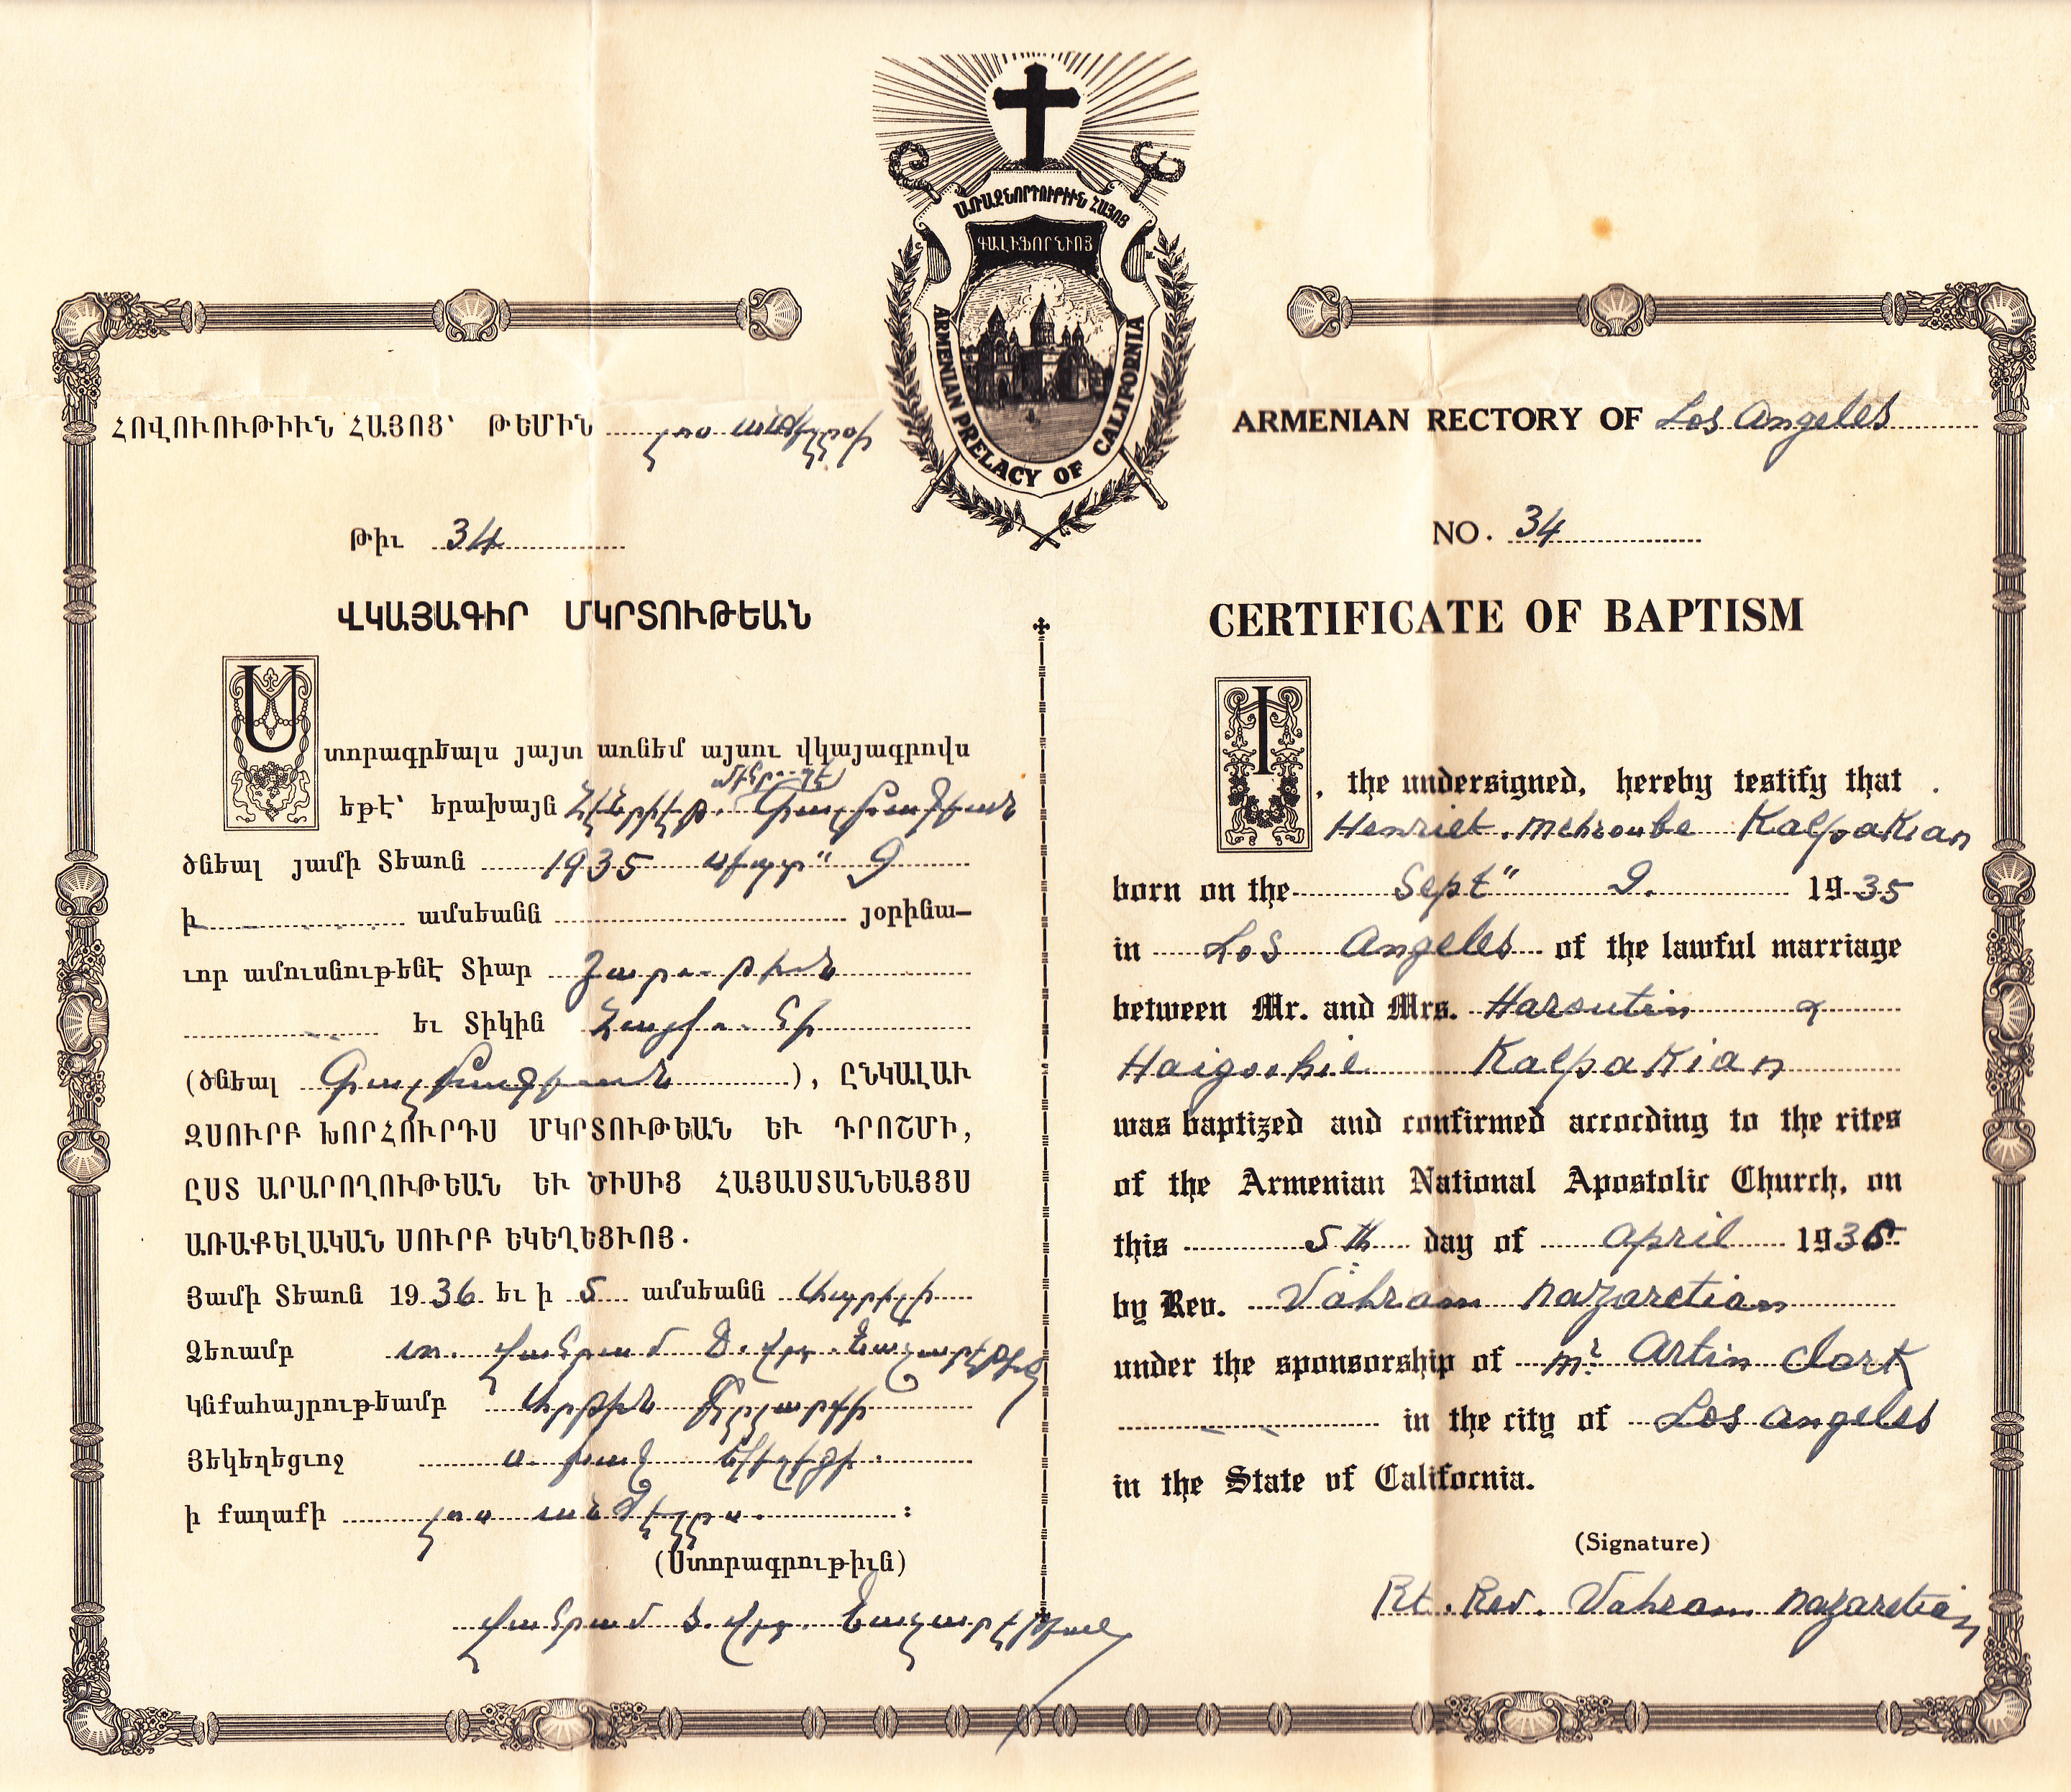 ԱՌԱՋՆՈՐԴՈՒԹԻՒՆ ՀԱՅՈՑ
ԳԱԼԻՖՈՐՆԻՈՅ
ARMENIAN PRELACY OF CALIFORNIA
ՀՈՎՈՒՈՒԹԻՒՆ ՀԱՅՈՑ՝ ԹԵՄԻՆ
Թիւ 34
ՎԿԱՅԱԳԻՐ ՄԿՐՏՈՒԹԵԱՆ
Ստորագրեալս յայտ առնեմ այսու վկայագրովս
եթէ՝ երախայն
ծնեալ յամի Տեառն 1935 սեպտ" 9
ի ամսեանն յօրինա—
ւոր ամուսնութենէ Տիար Յարութիւն
եւ Տիկին Հայկուհի
(ծնեալ), ԸՆԿԱԼԱՒ
ԶՍՈՒՐԲ ԽՈՐՀՈՒՐԴՍ ՄԿՐՏՈՒԹԵԱՆ ԵՒ ԴՐՈՇՄԻ,
ԸՍՏ ԱՐԱՐՈՂՈՒԹԵԱՆ ԵՒ ԾԻՍԻՑ ՀԱՅԱՍՏԱՆԵԱՅՑՍ
ԱՌԱՔԵԼԱԿԱՆ ՍՈՒՐԲ ԵԿԵՂԵՑՒՈՅ.
Յամի Տեառն 1936 եւ ի 5 ամսեանն Ապրիլի
Ձեռամբ տ. Վահրամ Ծ. վրդ. Նազարէթեից
Կնքահայրութեամբ Արթին Քլարքի
Յեկեղեցւոջ ս. խաչ
ի քաղաքի լոս անճելըս. :
(Ստորագրութիւն)
Վահրամ Ծ. վրդ. Նազարէթեան
ARMENIAN RECTORY OF Los Angeles
NO. 34
CERTIFICATE OF BAPTISM
I, the undersigned, hereby testify that
Henriet. Mehroube Kalpakian
born on the Sept" 9. 1935
in Los Angeles of the lawful marriage
between Mr. and Mrs. Haroutin &
Haigoohie Kalpakian
was baptized and confirmed according to the rites
of the Armenian National Apostolic Church, on
this 5th day of April 193
by Rev. Vahram Nazaretian
under the sponsorship of Mr. Artin Clark
in the city of Los Angeles
in the State of California.
(Signature)
Rt. Rev. Vahram Nazaretian